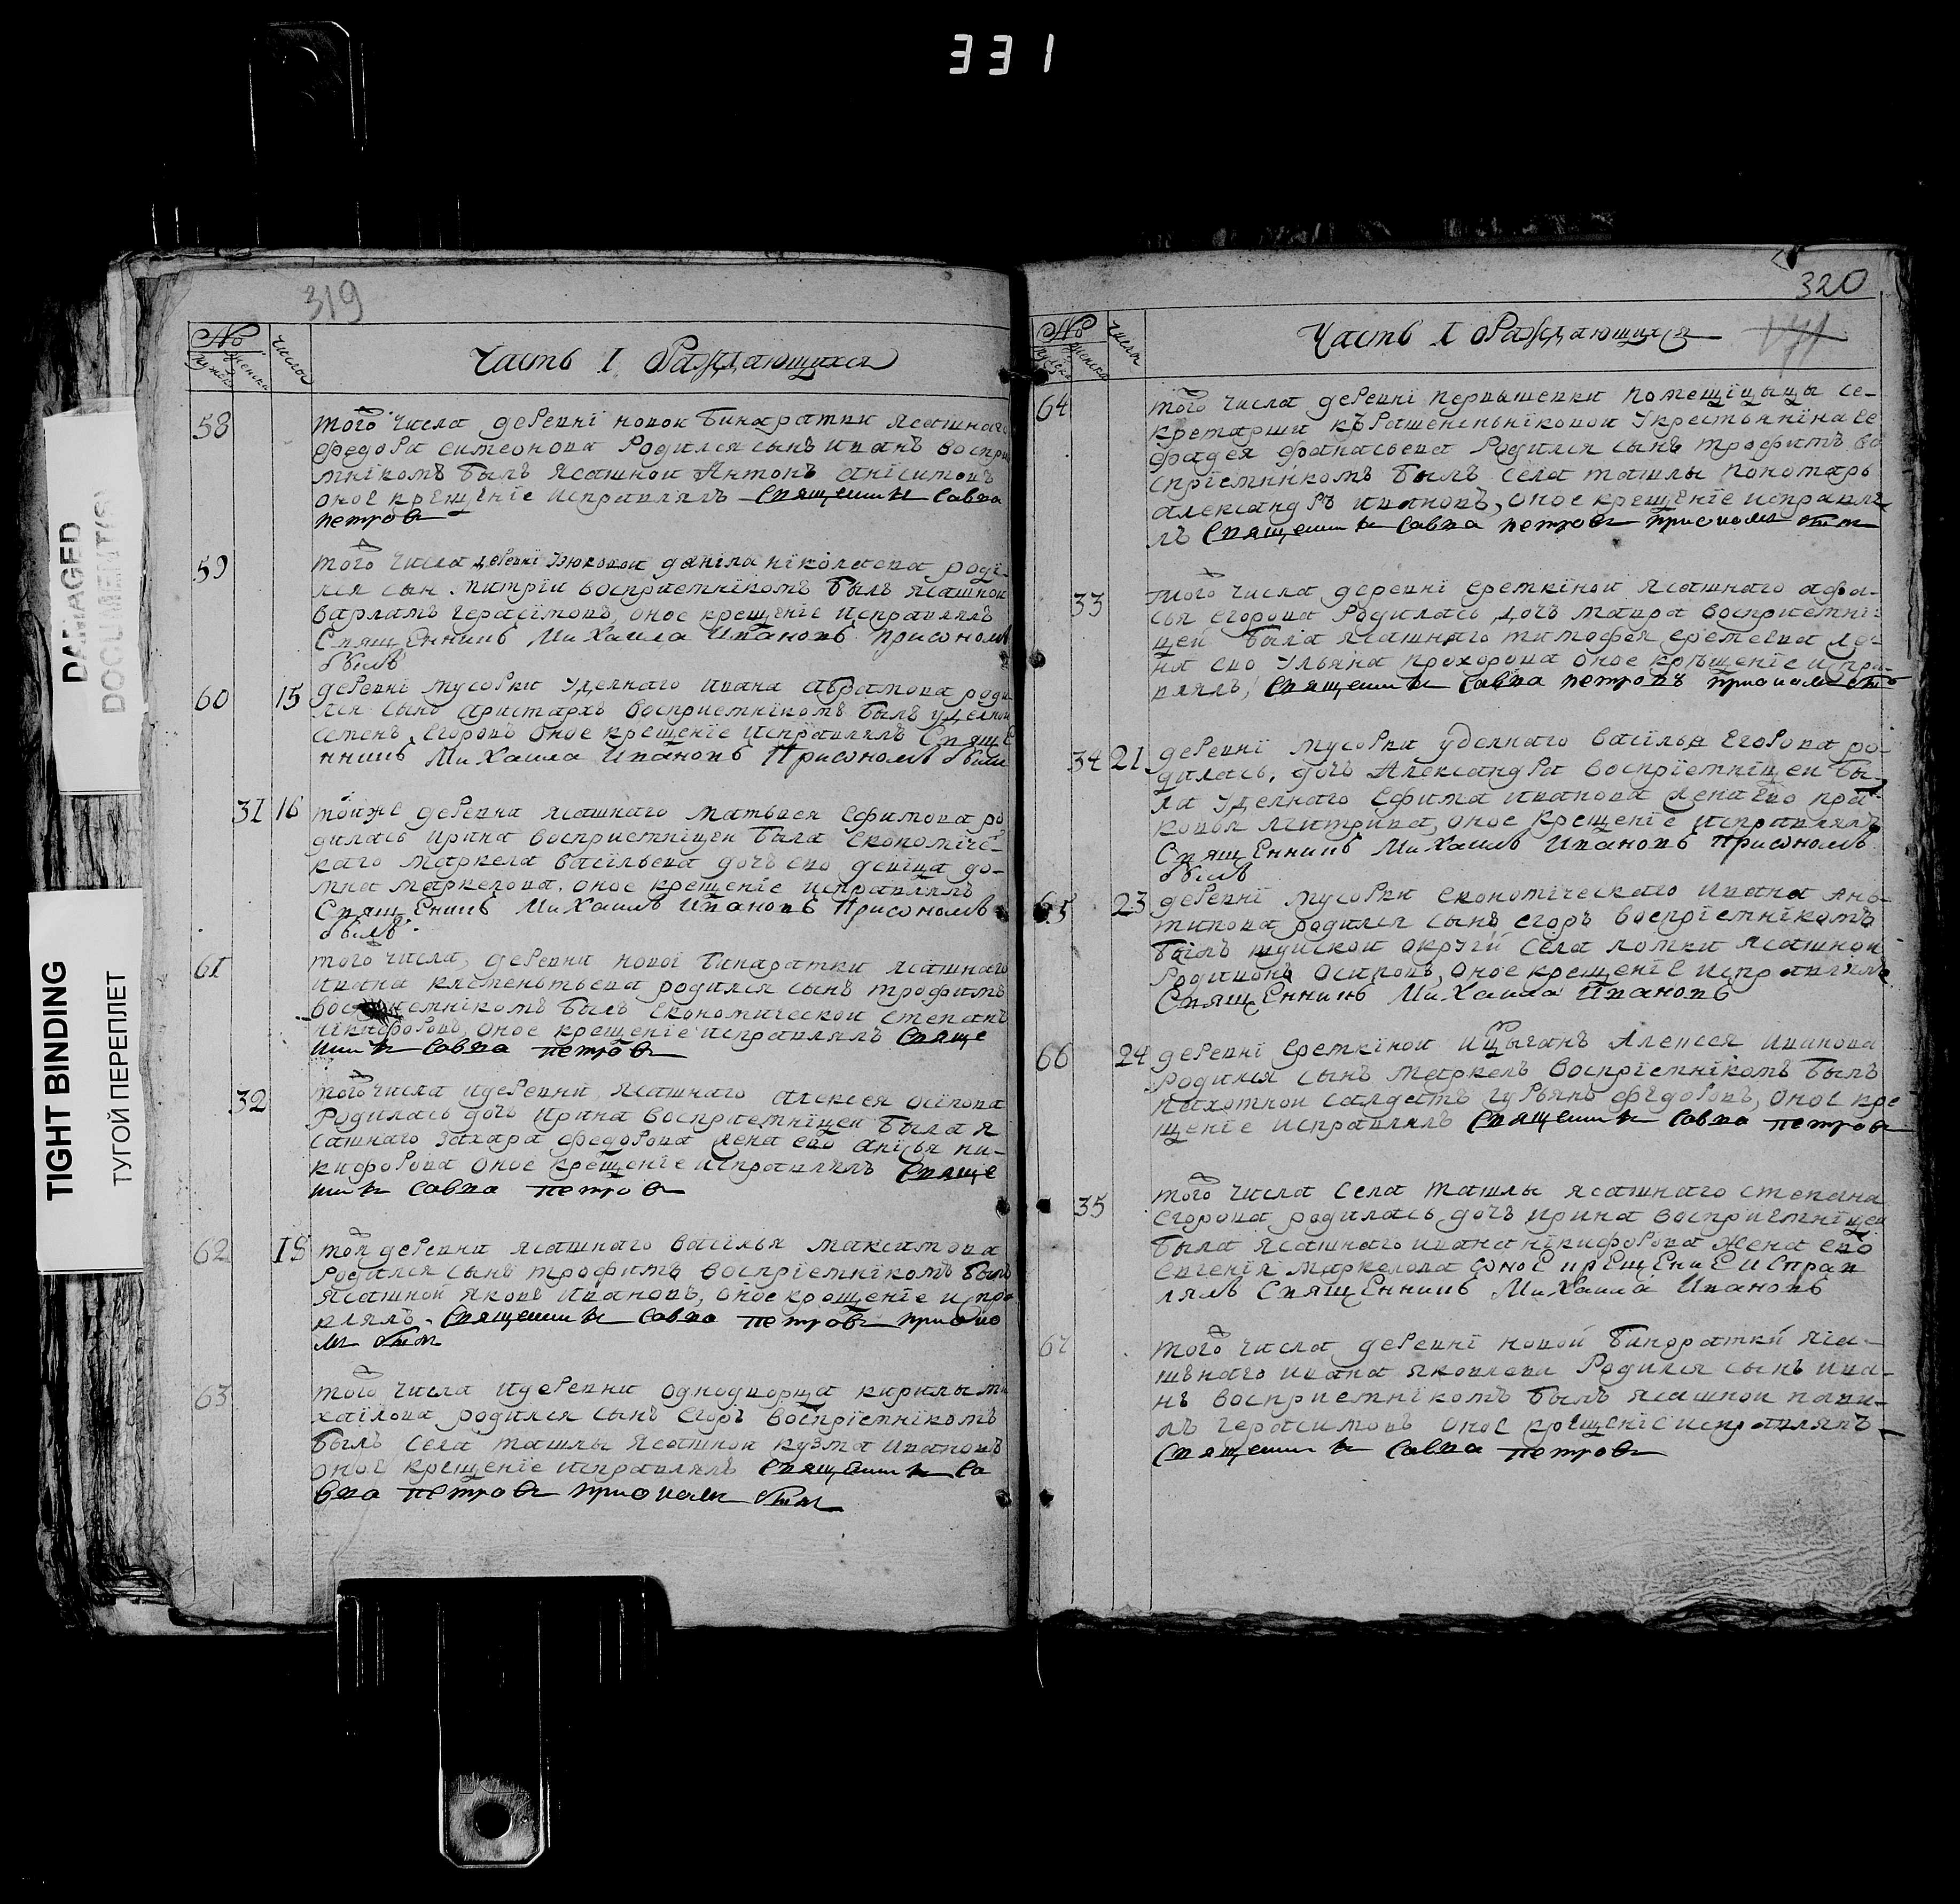 331
DAMAGED
DOCUMENT(S)
TIGHT BINDING
ТУГОЙ ПЕРЕПЛЕТ
319
№
мужеска
женска
числа
Часть I Ораждающихся
58
того числа деревнї новок бинаратки ясашнаго
федора симеонова родился сынъ иванъ воспри
мнїкомъ былъ ясашнои Антонъ анїсимовъ
оное крещенїе исправлялъ священникъ савва
петровъ
59
того числа деревнї данїла нїколаева родї
лся сын. митрїи восприемнїкомъ былъ ясашнои
варламъ герасїмовъ, оное крещенїе исправлялъ
Священникъ Михаила Ивановъ присономъ
былъ
60 15
деревнї мусорки уделнаго ивана абрамова роди
лся сынъ аристархъ восприемнїкомъ былъ уделнои
семенъ, егоровъ оное крещенїе исправлялъ Свяще
нникъ Михаила Ивановъ Присономъ были
31 16
тойже деревни ясашнаго матвея ефимова ро
дилась ирина восприемнїцеи была економїче
каго маркела васїльева дочь ево девїца до-
мна маркелова. оное крещенїе исправлялъ
Священикъ Михаилъ Ивановъ Присономъ
былъ.
61
того числа, деревни новоі бинаратки ясашнаго
ивана клеменьтьева родился сынъ трофимъ
восприемнїкомъ былъ економическои степанъ
нїкифоровъ, оное крещенїе исправлялъ Свяще
нникъ савва петровъ
32
того числа идеревни ясашнаго алексея осїпова
родилась дочь ирина восприемнїцеи была я
сашнаго захара федорова жена ево анїсья ни-
кифорова оное крещенїе исправлялъ Свяще
нникъ савва петровъ
62 18
тоя деревни ясашнаго васїлья максимова
родился сынъ трофимъ восприемнїкомъ былъ
ясашной яковъ ивановъ, оное крещенїе испра
влялъ. Священникъ савва петровъ присоно
мъ былъ
63
того числа идеревни однодворца кирилы ми
хаїлова родился сынъ егоръ воспрїемнїкомъ
былъ села ташлы ясашнои кузма ивановъ
оное крещенїе исправлялъ Священникъ са
вва петровъ присономъ былъ
320
№
мужеска
женска
числа
Часть I Ораждающихся
64
того числа деревнї первышевки помещїцыцы се-
кретарши укрестьянїна ге
фадея фанасьева родился сынъ трофимъ во
спрїемнїкомъ былъ села ташлы пономарь
александръ ивановъ, оное крещенїе исправля
лъ Священникъ савва петровъ присономъ былъ
33
того числа деревнї ереткїнои ясашнаго афа-
сья егорова родилась дочь мавра восприемнї-
цей была ясашнаго тимофея еремеева же-
на ево ульяна прохорова оное крещенїе испра-
влялъ, Священникъ савва петровъ присономъ былъ
34 21
деревнї мусорки уделнаго васїлья егорова ро-
дилась, дочь Александра воспрїемнїцеи бы-
ла уделнаго ефима иванова жена ево пра-
ковья митрива, оное крещенїе исправлялъ
Священникъ Михаилъ Ивановъ Присономъ
былъ
65 23
деревнї мусорки економїческаго ивана ань-
типова родился сынъ егоръ воспрїемнїкомъ
былъ шуискои округи села лотки ясашнои
родионъ осиповъ, оное крещенїе исправлялъ
Священникъ Михаила Ивановъ
66 24
деревнї ереткїнои ицыганъ Алексея иванова
родился сынъ маркелъ воспрїемнїкомъ былъ
пехотнои салдатъ гурьянъ федоровъ, оное кре
щенїе исправлялъ Священникъ савва петровъ
35
того числа села ташлы ясашнаго степана
егорова родилась дочь ирина восприемнїцеи
была ясашнаго ивана нїкифорова жена ево
евгенїя маркелова оное крещение исправ
лялъ Священникъ Михаила Ивановъ
67
того числа деревнї новой бинаратки яса-
шьнаго ивана яковлева родился сынъ ива-
нъ восприемнїкомъ былъ ясашнои гави-
лъ герасимовъ оное крещенїе исправлялъ
Священникъ савва петровъ